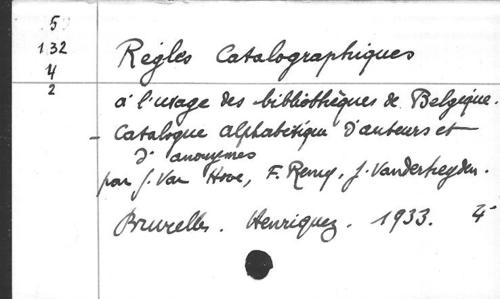 5
132
4
2
Règles Catalographiques
à l'usage des bibliothèques de Belgique.
- Catalogue alphabétique d'auteurs et
d'anonymes
par J. Van Hove, F. Remy, J. Vanderheyden.
Bruxelles. Henriquez. 1933. 4°